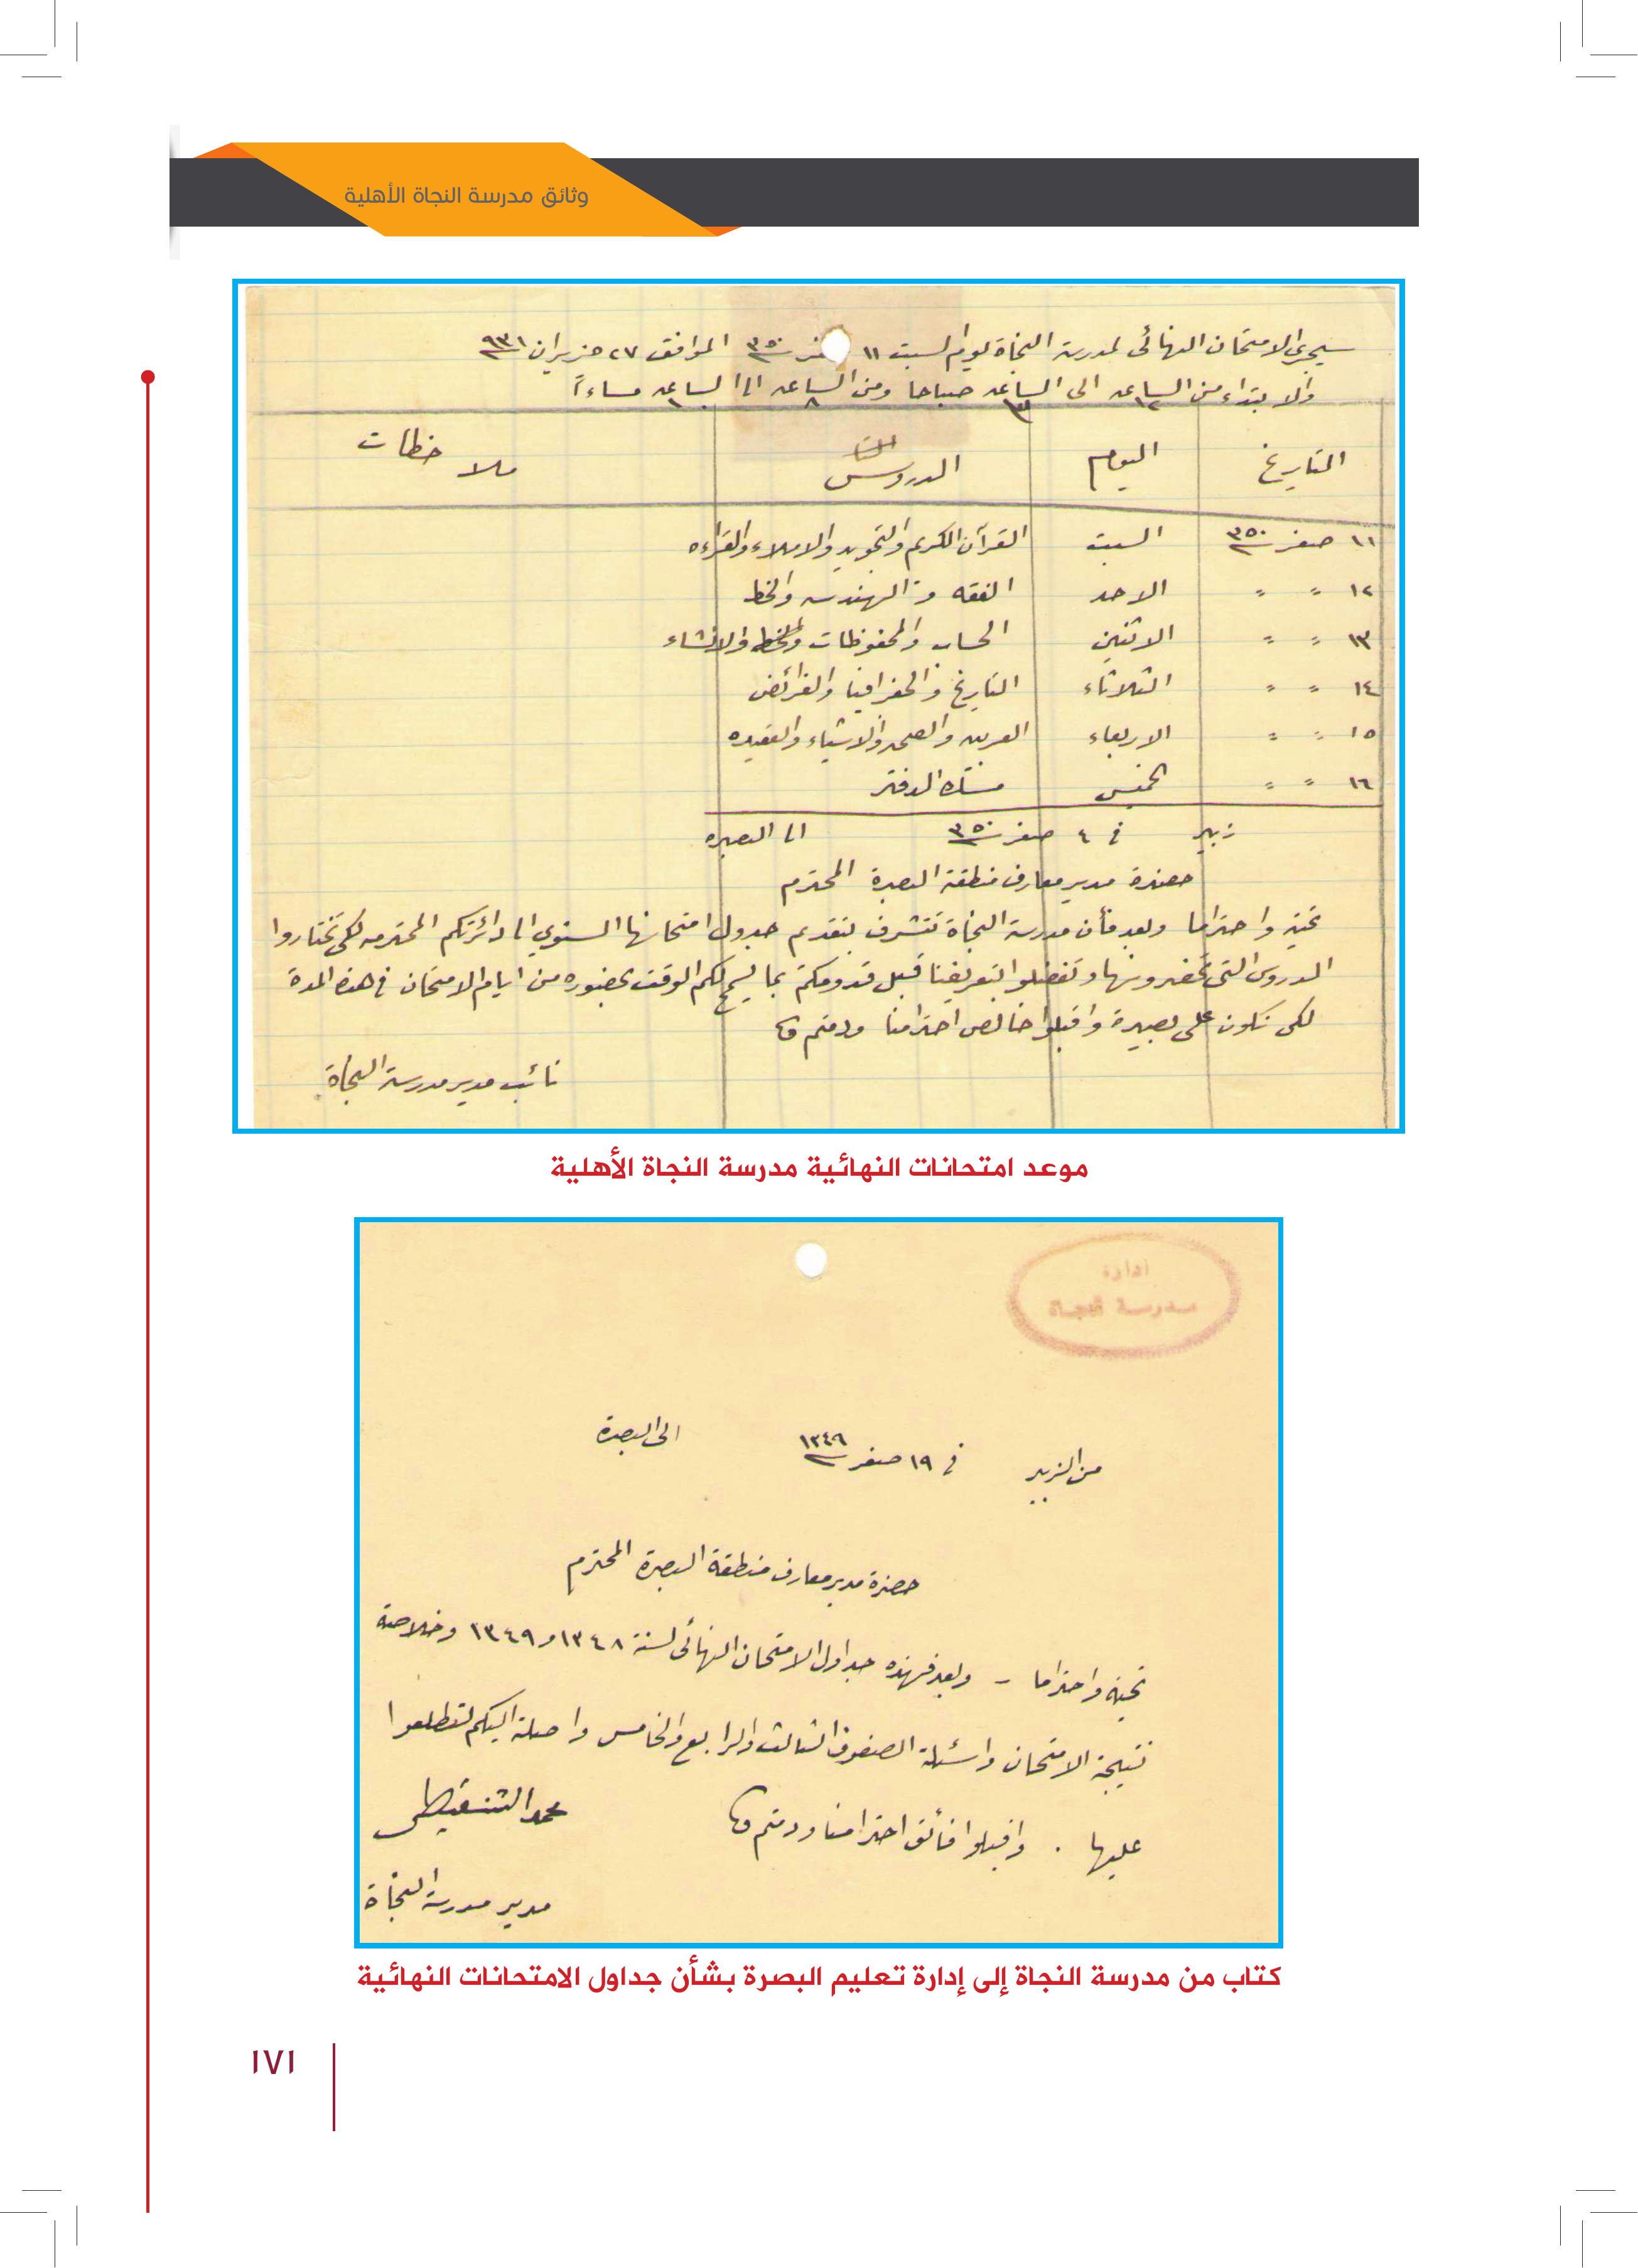 وثائق مدرسة النجاة الأهلية
سيجري الامتحان النهائي لمدرسة النجاة يوم السبت ١١ صفر سنة ٣٥٠ الموافق ٢٧ حزيران ٩٣١
والابتداء من الساعه ١٢ الى الساعه ٣ صباحا ومن الساعه ٨ الى الساعه ١٠ مساءاً
التاريخ اليوم الدروس ملاحظات
١١ صفر سنة ٣٥٠ السبت القرآن الكريم والتجويد والاملاء والقراءه
١٢ " " الاحد الفقه والهندسه والخط
١٣ " " الاثنين الحساب والمحفوظات والانشاء
١٤ " " الثلاثاء التاريخ والجغرافيا والفرائض
١٥ " " الاربعاء العربيه والصحه والاشياء والعقيده
١٦ " " الخميس مسك الدفتر
زبير في ٤ صفر سنة ٣٥٠ الى البصره
حضرة مدير معارف منطقة البصرة المحترم
تحية واحتراما وبعد فأن مدرسة النجاة تتشرف بتقديم جدول امتحانها السنوي الى دائرتكم المحترمه لكي تختاروا
الدروس التي تحضرونها وتفضلوا بتعريفنا قبل قدومكم بما يسمح لكم الوقت بحضوره من ايام الامتحان في هذه المدة
لكي نكون على بصيرة واقبلوا خالص احترامنا ودمتم
نائب مدير مدرسة النجاة
موعد امتحانات النهائية مدرسة النجاة الأهلية
ادارة
مدرسة النجاة
من الزبير في ١٩ صفر سنة ١٣٤٩ الى البصرة
حضرة مدير معارف منطقة البصرة المحترم
تحية واحتراما - وبعد فهذه جداول الامتحان النهائي لسنة ١٣٤٨ و ١٣٤٩ وخلاصة
نتيجة الامتحان واسئلة الصفوف الثالث والرابع والخامس واصلة اليكم لتطلعوا
عليها . واقبلوا فائق احترامنا ودمتم
محمد الشنقيطي
مدير مدرسة النجاة
كتاب من مدرسة النجاة إلى إدارة تعليم البصرة بشأن جداول الامتحانات النهائية
١٧١